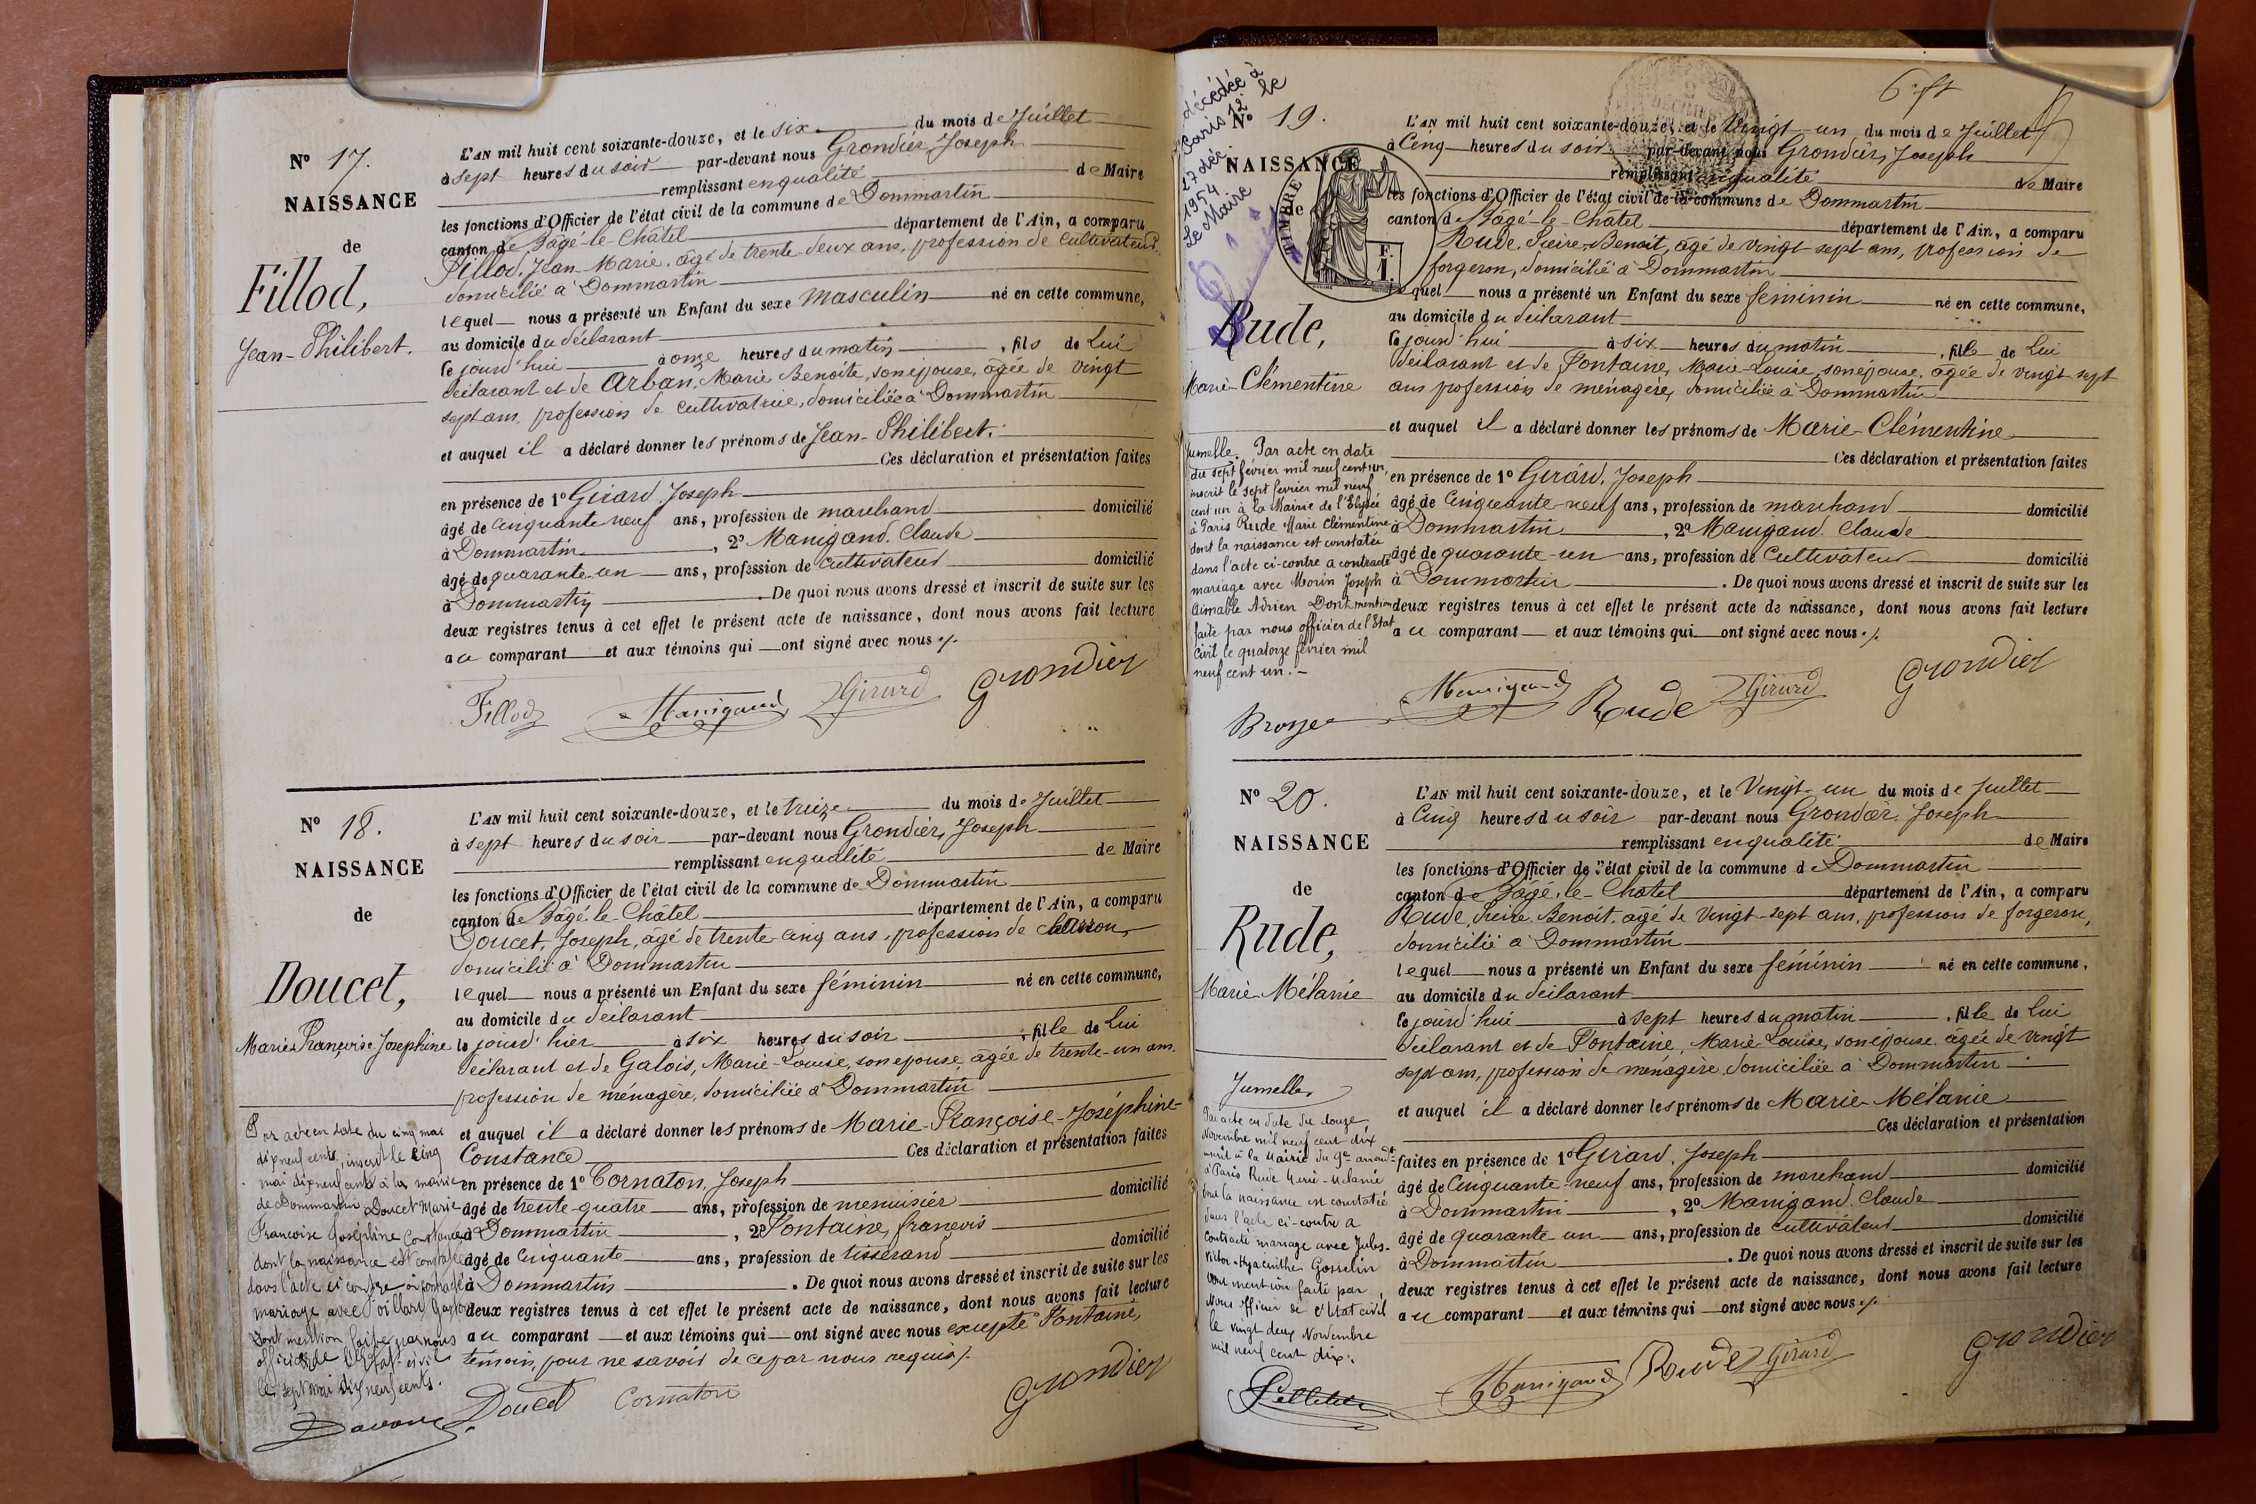 Nº 17.
NAISSANCE
de
Fillod,
Jean-Philibert.
L'AN mil huit cent soixante-douze, et le six du mois de Juillet
à sept heures du soir par-devant nous Grondier, Joseph
remplissant en qualité de Maire
les fonctions d'Officier de l'état civil de la commune de Dommartin
canton de Bâgé-le-Châtel département de l'Ain, a comparu
Fillod, Jean-Marie, âgé de trente-deux ans, profession de cultivateur,
domicilié à Dommartin
lequel nous a présenté un Enfant du sexe masculin né en cette commune,
au domicile du déclarant
le jourd'hui à onze heures du matin, fils de Lui
déclarant et de Arban, Marie Benoite, son épouse, âgée de vingt
sept ans, profession de cultivatrice, domiciliée à Dommartin
et auquel il a déclaré donner les prénoms de Jean-Philibert.
Ces déclaration et présentation faites
en présence de 1º Girard, Joseph
âgé de cinquante neuf ans, profession de marchand domicilié
à Dommartin, 2º Manigand, Claude
âgé de quarante-un ans, profession de cultivateur domicilié
à Dommartin. De quoi nous avons dressé et inscrit de suite sur les
deux registres tenus à cet effet le présent acte de naissance, dont nous avons fait lecture
au comparant et aux témoins qui ont signé avec nous
Fillod Manigand Girard Grondier
Nº 18.
NAISSANCE
de
Doucet,
Marie Françoise Josephine
L'AN mil huit cent soixante-douze, et le treize du mois de Juillet
à sept heures du soir par-devant nous Grondier, Joseph
remplissant en qualité de Maire
les fonctions d'Officier de l'état civil de la commune de Dommartin
canton de Bâgé-le-Châtel département de l'Ain, a comparu
Doucet, Joseph, âgé de trente-cinq ans, profession de
domicilié à Dommartin
lequel nous a présenté un Enfant du sexe féminin né en cette commune,
au domicile du déclarant
le jourd'hier à six heures du soir, fille de Lui
déclarant et de Galois, Marie-Louise, son épouse, âgée de trente-un ans,
profession de ménagère, domiciliée à Dommartin
et auquel il a déclaré donner les prénoms de Marie-Françoise-Joséphine-
Constance Ces déclaration et présentation faites
en présence de 1º Cornaton, Joseph
âgé de trente-quatre ans, profession de menuisier domicilié
à Dommartin, 2º Fontaine, françois
âgé de Cinquante ans, profession de tisserand domicilié
à Dommartin. De quoi nous avons dressé et inscrit de suite sur les
deux registres tenus à cet effet le présent acte de naissance, dont nous avons fait lecture
au comparant et aux témoins qui ont signé avec nous excepté Fontaine,
témoin, pour ne savoir de ce par nous requis
Doucet Cornaton Grondier
Par acte en date du cinq mai
dix neuf cents, inscrit le cinq
mai dix neuf cents à la mairie
de Dommartin Doucet Marie
Françoise Joséphine Constance
dont la naissance est constatée
dans l'acte ci contre a contracté
mariage avec
Dont mention faite par nous
officier de l'Etat-civil
le sept mai dix neuf cents.
décédée à
Paris 12 le
27
1954
Le Maire
6 ft
Nº 19.
NAISSANCE
de
TIMBRE
F.
1.
Rude,
Marie-Clémentine
L'AN mil huit cent soixante-douze, et le Vingt-un du mois de Juillet
à Cinq heures du soir par-devant nous Grondier, Joseph
remplissant en qualité de Maire
les fonctions d'Officier de l'état civil de la commune de Dommartin
canton de Bâgé-le-Châtel département de l'Ain, a comparu
Rude, Pierre-Benoit, âgé de vingt sept ans, profession de
forgeron, domicilié à Dommartin
lequel nous a présenté un Enfant du sexe féminin né en cette commune,
au domicile du déclarant
le jourd'hui à six heures du matin, fille de Lui
déclarant et de Fontaine, Marie-Louise, son épouse, âgée de vingt-sept
ans profession de ménagère, domiciliée à Dommartin
et auquel il a déclaré donner les prénoms de Marie-Clémentine
Ces déclaration et présentation faites
en présence de 1º Girard, Joseph
âgé de Cinquante-neuf ans, profession de marchand domicilié
à Dommartin, 2º Manigand, Claude
âgé de quarante-un ans, profession de Cultivateur domicilié
à Dommartin. De quoi nous avons dressé et inscrit de suite sur les
deux registres tenus à cet effet le présent acte de naissance, dont nous avons fait lecture
au comparant et aux témoins qui ont signé avec nous
Manigand Rude Girard Grondier
Jumelle. Par acte en date
du sept février mil neuf cent un,
inscrit le sept février mil neuf
cent un à la Mairie de l'Elysée
à Paris Rude Marie Clémentine
dont la naissance est constatée
dans l'acte ci-contre a contracté
mariage avec Morin Joseph
Aimable Adrien Dont mention
faite par nous officier de l'Etat
Civil le quatorze février mil
neuf cent un.
Nº 20.
NAISSANCE
de
Rude,
Marie-Mélanie
L'AN mil huit cent soixante-douze, et le Vingt-un du mois de Juillet
à Cinq heures du soir par-devant nous Grondier, Joseph
remplissant en qualité de Maire
les fonctions d'Officier de l'état civil de la commune de Dommartin
canton de Bâgé-le-Châtel département de l'Ain, a comparu
Rude, Pierre-Benoît, âgé de vingt-sept ans, profession de forgeron,
domicilié à Dommartin
lequel nous a présenté un Enfant du sexe féminin né en cette commune,
au domicile du déclarant
le jourd'hui à sept heures du matin, fille de Lui
déclarant et de Fontaine, Marie Louise, son épouse, âgée de vingt
sept ans, profession de ménagère, domiciliée à Dommartin
et auquel il a déclaré donner les prénoms de Marie-Mélanie
Ces déclaration et présentation
faites en présence de 1º Girard, Joseph
âgé de Cinquante-neuf ans, profession de marchand domicilié
à Dommartin, 2º Manigand, Claude
âgé de quarante-un ans, profession de Cultivateur domicilié
à Dommartin. De quoi nous avons dressé et inscrit de suite sur les
deux registres tenus à cet effet le présent acte de naissance, dont nous avons fait lecture
au comparant et aux témoins qui ont signé avec nous
Manigand Rude Girard Grondier
Jumelle
Par acte en date du douze
Novembre mil neuf cent dix
inscrit à la Mairie du 9e arrondt
à Paris Rude Marie-Mélanie
dont la naissance est constatée
dans l'acte ci-contre a
contracté mariage avec Jules-
Victor-Hyacinthe Gosselin
Dont mention faite par
Nous officier de l'Etat civil
le vingt deux Novembre
mil neuf cent dix.